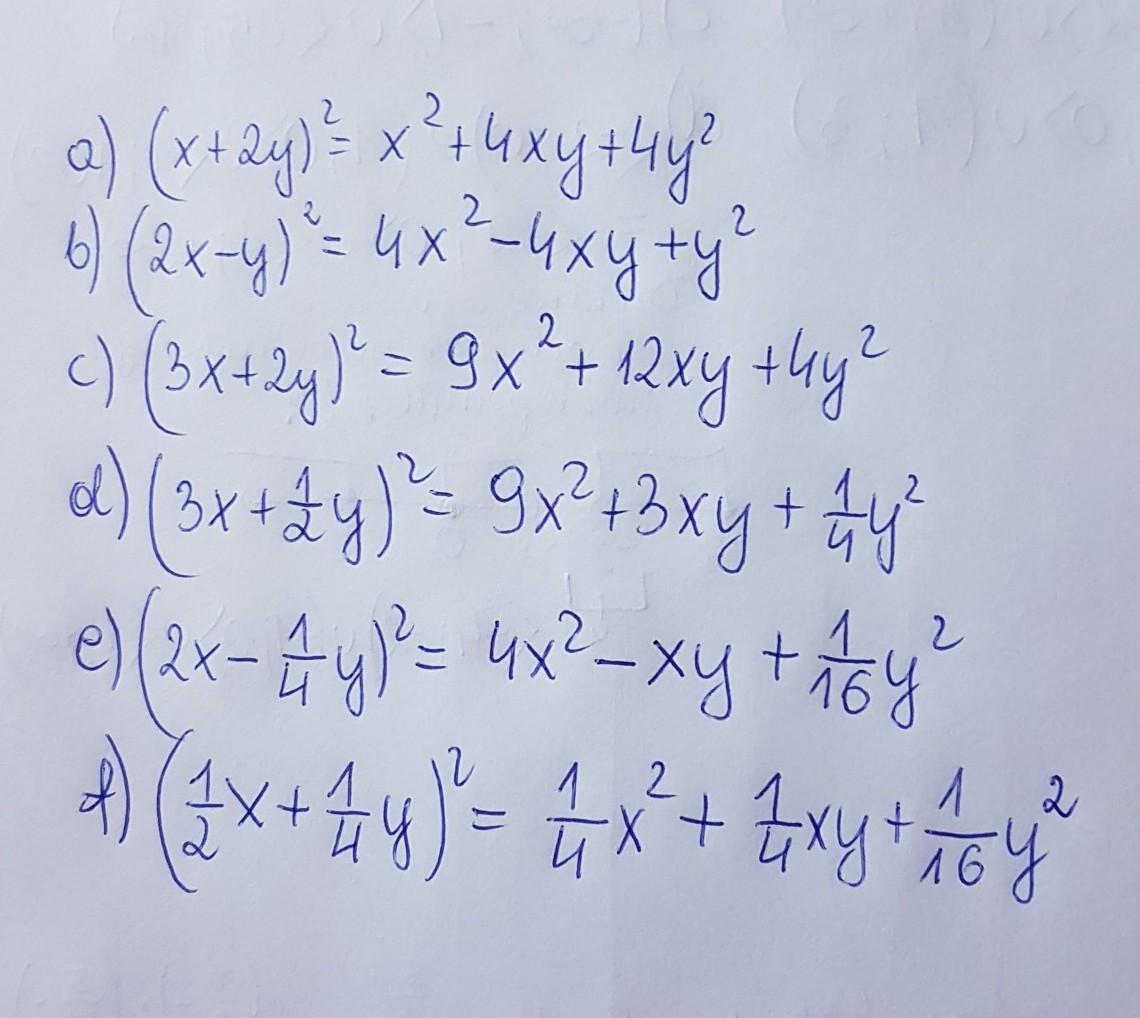 a) (x+2y)²= x²+4xy+4y²
b) (2x-y)²= 4x²-4xy+y²
c) (3x+2y)² = 9x²+ 12xy +4y²
d) (3x+½y)²= 9x²+3xy + ¼y²
e) (2x-¼y)²= 4x²-xy + 1/16y²
f) (½x+¼y)²= ¼x²+ ¼xy+1/16y²